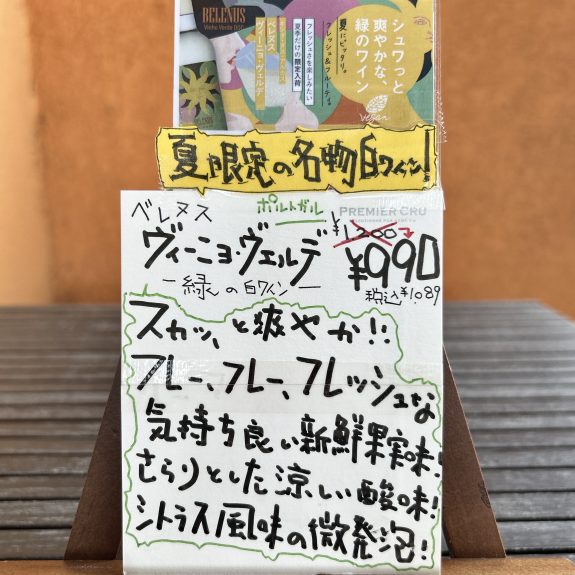 BELENUS
Vinho Verde DOC
シュワっと
爽やかな、
緑のワイン
夏にピッタリ。
フレッシュ&フルーティ。
フレッシュさを楽しみたい
夏季だけの限定入荷
ベレヌス
ヴィーニョ・ヴェルデ
Vegan
夏限定の名物白ワイン!
ベレヌス
ポルトガル
PREMIER CRU
ヴィーニョ・ヴェルデ
¥1,200
¥990
税込¥1,089
ー緑の白ワインー
スカッ、と爽やか!!
フレー、フレー、フレッシュな
気持ち良い新鮮果実味!
さらりとした涼しい酸味!
シトラス風味の微発泡!